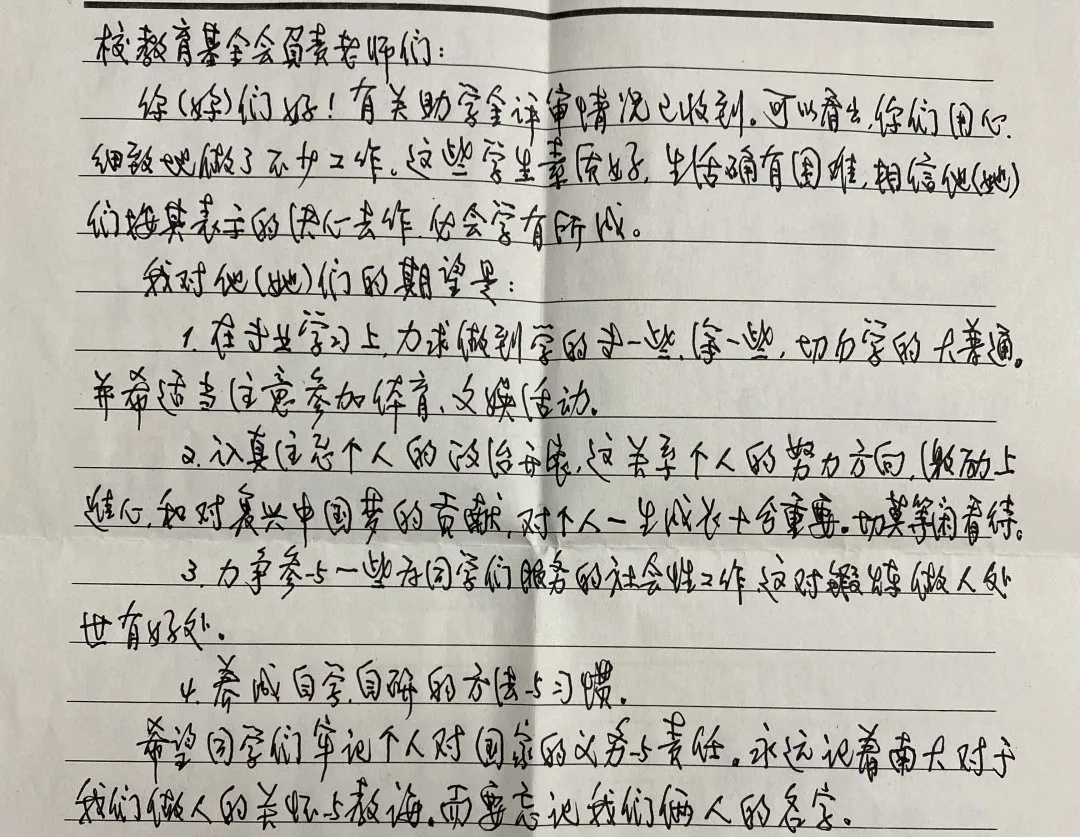 校教育基金会负责老师们:
你(妳)们好!有关助学金评审情况已收到。可以看出,你们用心、
细致地做了不少工作。这些学生素质好,生活确有困难,相信他(她)
们按其表示的决心去作,必会学有所成。
我对他(她)们的期望是:
1.在专业学习上,力求做到学的专一些,深一些,切勿学的大普通。
并希适当注意参加体育、文娱活动。
2.认真注意个人的政治开展,这关系个人的努力方向,激励上
进心,和对复兴中国梦的贡献,对个人一生成长十分重要。切莫等闲看待。
3.力争参与一些为同学们服务的社会性工作,这对锻炼做人处
世有好处。
4.养成自学、自研的方法与习惯。
希望同学们牢记个人对国家的义务与责任。永远记着南大对于
我们做人的关怀与教诲。而要忘记我们俩人的名字。